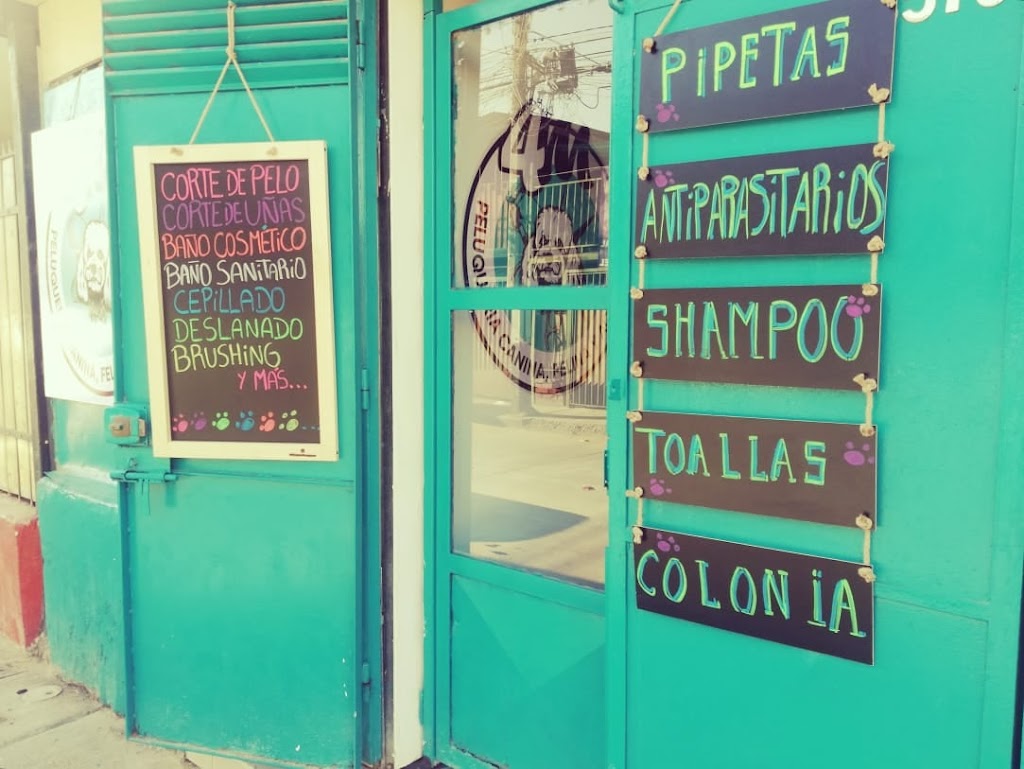 CORTE DE PELO
CORTE DE UÑAS
BAÑO COSMÉTICO
BAÑO SANITARIO
CEPILLADO
DESLANADO
BRUSHING
Y MÁS...
PELUQUE
CANINA, FEL
4M
PELUQUE
IA CANINA, FE
PIPETAS
ANTIPARASITARIOS
SHAMPOO
TOALLAS
COLONIA